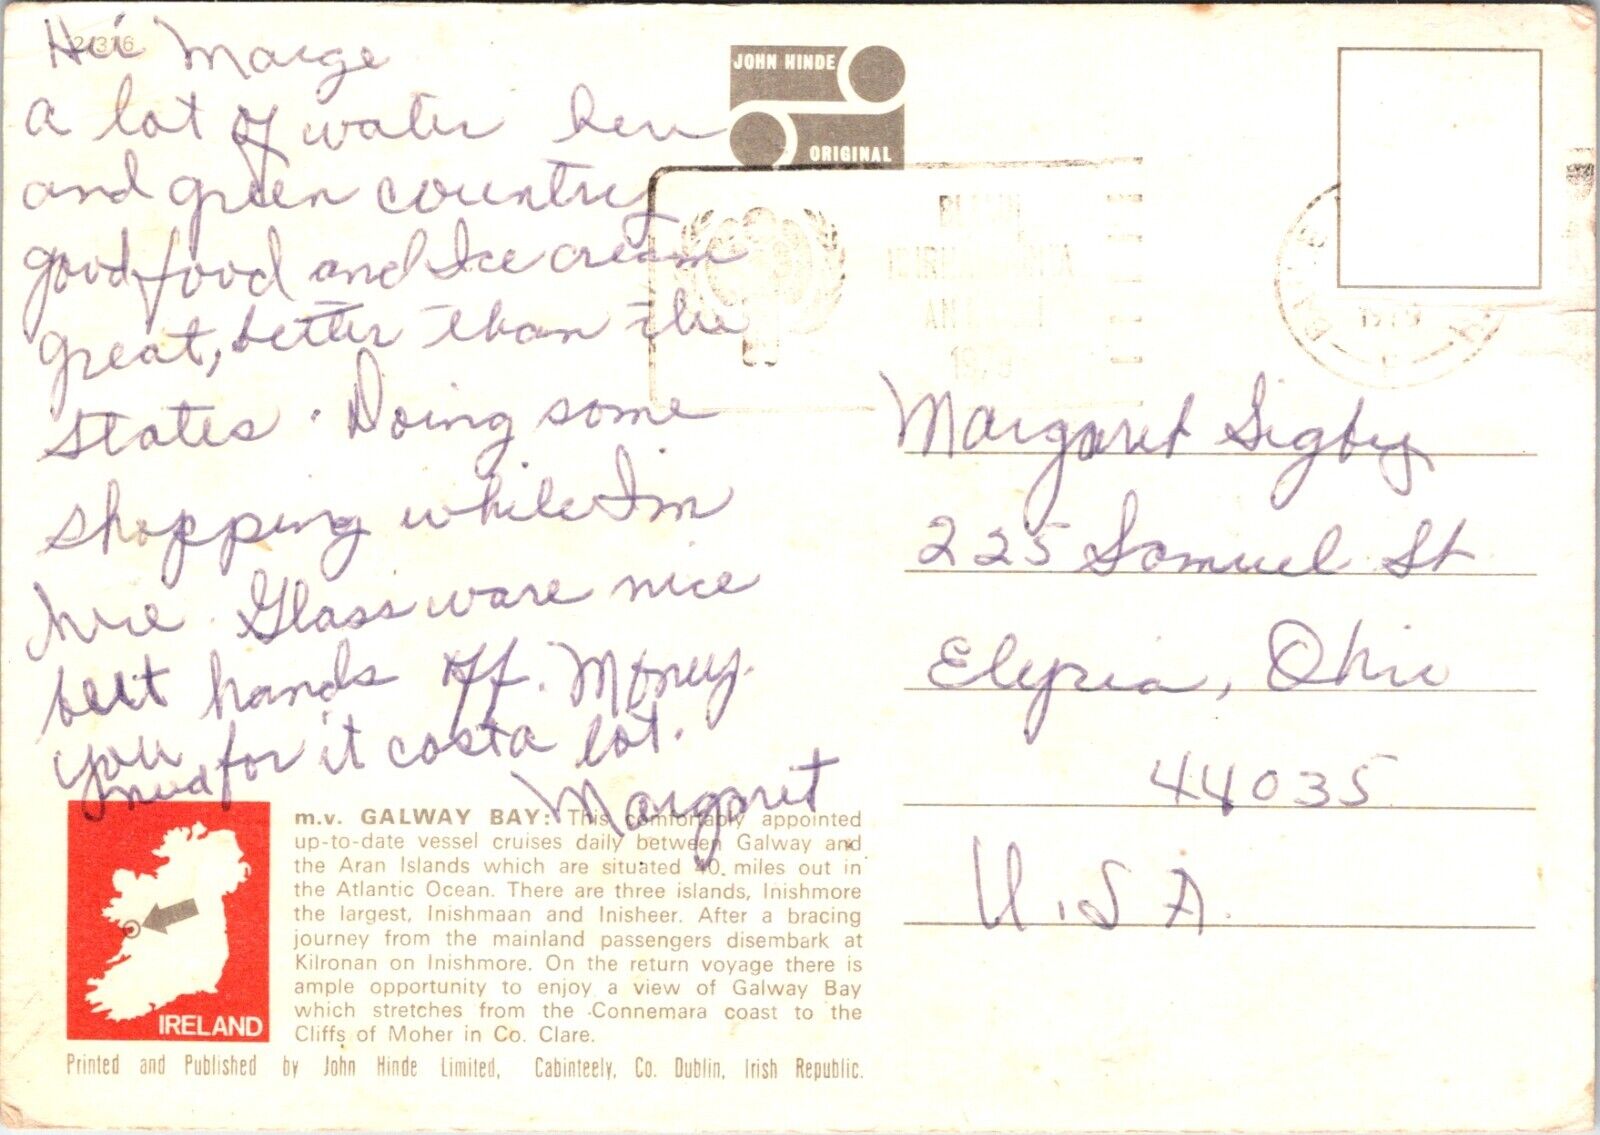 2/316
Hii Marge
a lot of water here
and green country
good food and Ice cream
great, better than the
states. Doing some
shopping while I'm
here. Glassware nice
but hands off. Money.
you need for it cost a lot.
Margaret
JOHN HINDE
ORIGINAL
1979
1979
Margaret Sigby
225 Samuel St
Elyria, Ohio
44035
U.S A.
m.v. GALWAY BAY: This comfortably appointed
up-to-date vessel cruises daily between Galway and
the Aran Islands which are situated 40 miles out in
the Atlantic Ocean. There are three islands, Inishmore
the largest, Inishmaan and Inisheer. After a bracing
journey from the mainland passengers disembark at
Kilronan on Inishmore. On the return voyage there is
ample opportunity to enjoy a view of Galway Bay
which stretches from the Connemara coast to the
Cliffs of Moher in Co. Clare.
IRELAND
Printed and Published by John Hinde Limited, Cabinteely, Co. Dublin, Irish Republic.